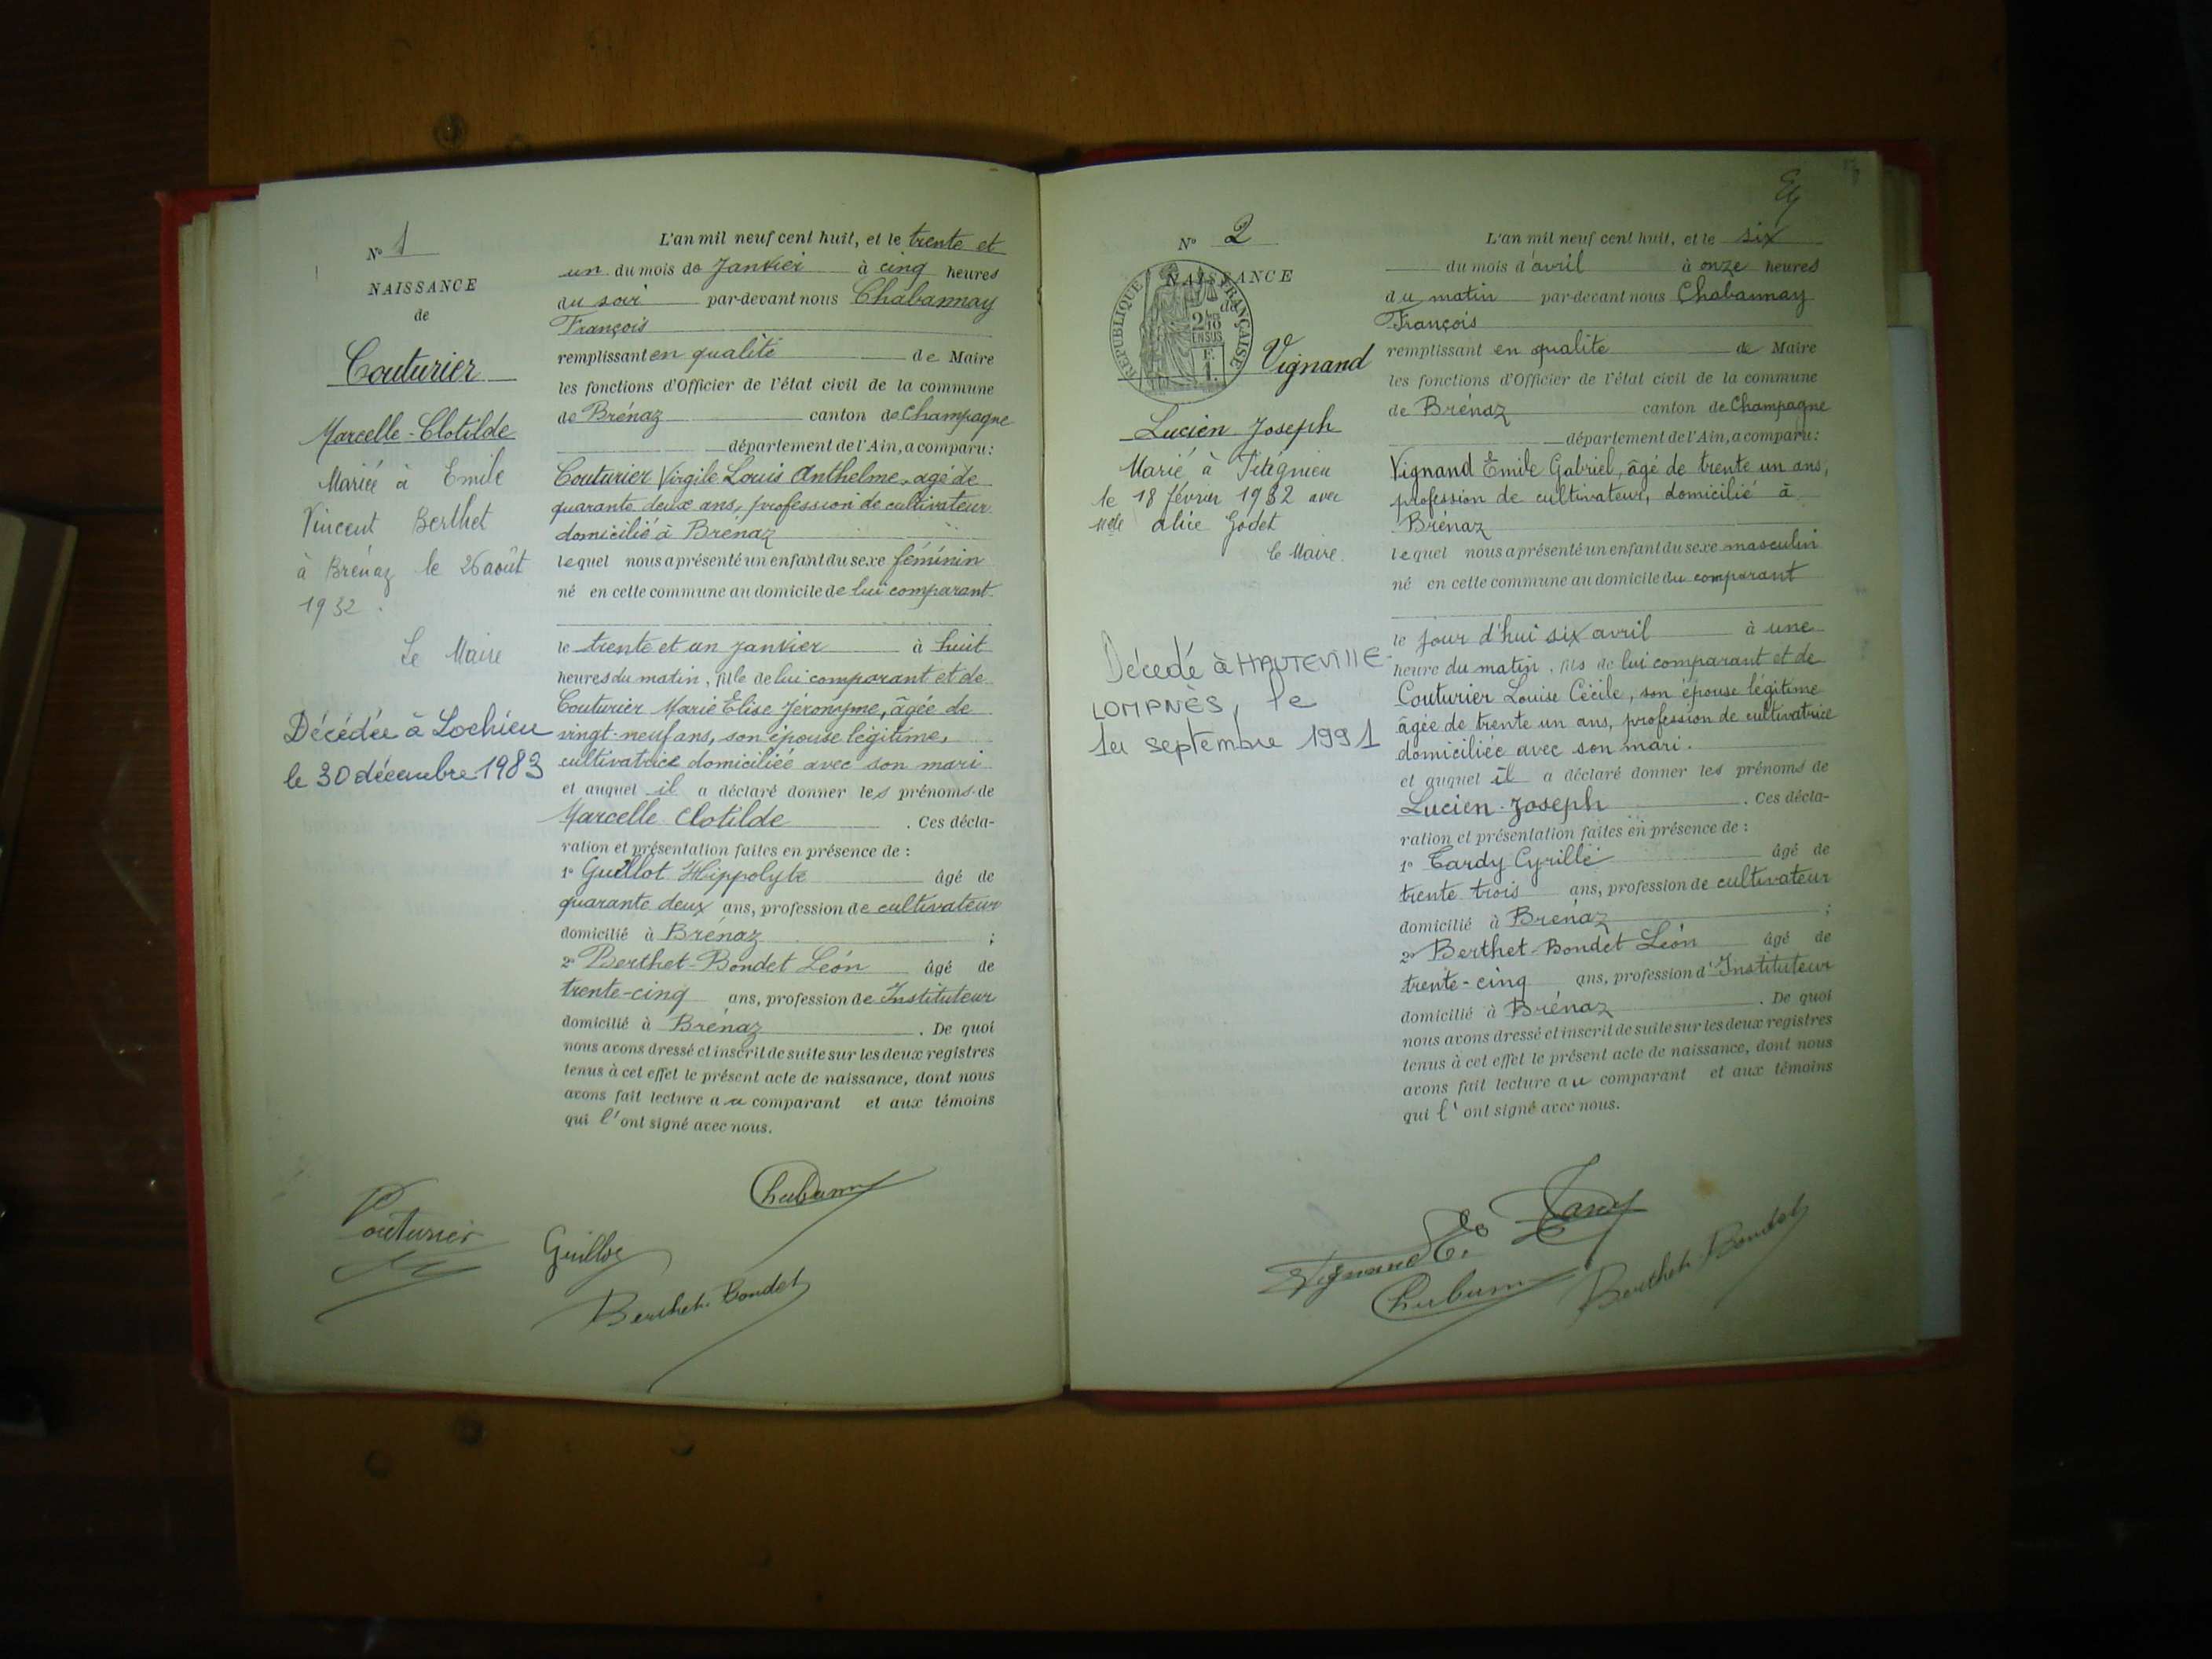 Nº 1
NAISSANCE
de
Couturier
Marcelle-Clotilde
Mariée à Emile
Vincent Berthet
à Brénaz le 26 août
1932.
Le Maire
Décédée à Lochieu
le 30 décembre 1983
L'an mil neuf cent huit, et le trente et
un du mois de Janvier à cinq heures
du soir par-devant nous Chabannay
François
remplissant en qualité de Maire
les fonctions d'Officier de l'état civil de la commune
de Brénaz canton de Champagne
département de l'Ain, a comparu:
Couturier Virgile Louis Anthelme, agé de
quarante deux ans, profession de cultivateur
domicilié à Brénaz
lequel nous a présenté un enfant du sexe féminin
né en cette commune au domicile de lui comparant
le trente et un janvier à huit
heures du matin, fille de lui comparant et de
Couturier Marie Elise Jéronyme, âgée de
vingt-neuf ans, son épouse légitime,
cultivatrice domiciliée avec son mari
et auquel il a déclaré donner les prénoms de
Marcelle Clotilde . Ces décla-
ration et présentation faites en présence de :
1º Guillot Hippolyte âgé de
quarante deux ans, profession de cultivateur
domicilié à Brénaz ;
2º Berthet-Bondet Léon âgé de
trente-cinq ans, profession de Instituteur
domicilié à Brénaz . De quoi
nous avons dressé et inscrit de suite sur les deux registres
tenus à cet effet le présent acte de naissance, dont nous
avons fait lecture au comparant et aux témoins
qui l'ont signé avec nous.
Couturier
Guillot
Berthet-Bondet
Nº 2
NAISSANCE
de
RÉPUBLIQUE FRANÇAISE
2/10
EN SUS
Vignand
Lucien Joseph
Marié à
le 18 février 1932 avec
Melle Alice Godet
le Maire.
Décédé à HAUTEVILLE-
LOMPNÈS, le
1er septembre 1991
L'an mil neuf cent huit, et le six
du mois d'avril à onze heures
du matin par-devant nous Chabannay
François
remplissant en qualité de Maire
les fonctions d'Officier de l'état civil de la commune
de Brénaz canton de Champagne
département de l'Ain, a comparu:
Vignand Emile Gabriel, âgé de trente un ans,
profession de cultivateur, domicilié à
Brénaz
lequel nous a présenté un enfant du sexe masculin
né en cette commune au domicile du comparant
le jour d'hui six avril à une
heure du matin, fils de lui comparant et de
Couturier Louise Cécile, son épouse légitime
âgée de trente un ans, profession de cultivatrice
domiciliée avec son mari.
et auquel il a déclaré donner les prénoms de
Lucien-Joseph . Ces décla-
ration et présentation faites en présence de :
1º Tardy Cyrille âgé de
trente trois ans, profession de cultivateur
domicilié à Brénaz ;
2º Berthet-Bondet Léon âgé de
trente-cinq ans, profession d'Instituteur
domicilié à Brénaz . De quoi
nous avons dressé et inscrit de suite sur les deux registres
tenus à cet effet le présent acte de naissance, dont nous
avons fait lecture au comparant et aux témoins
qui l'ont signé avec nous.
Vignand E.
Tardy
Berthet-Bondet